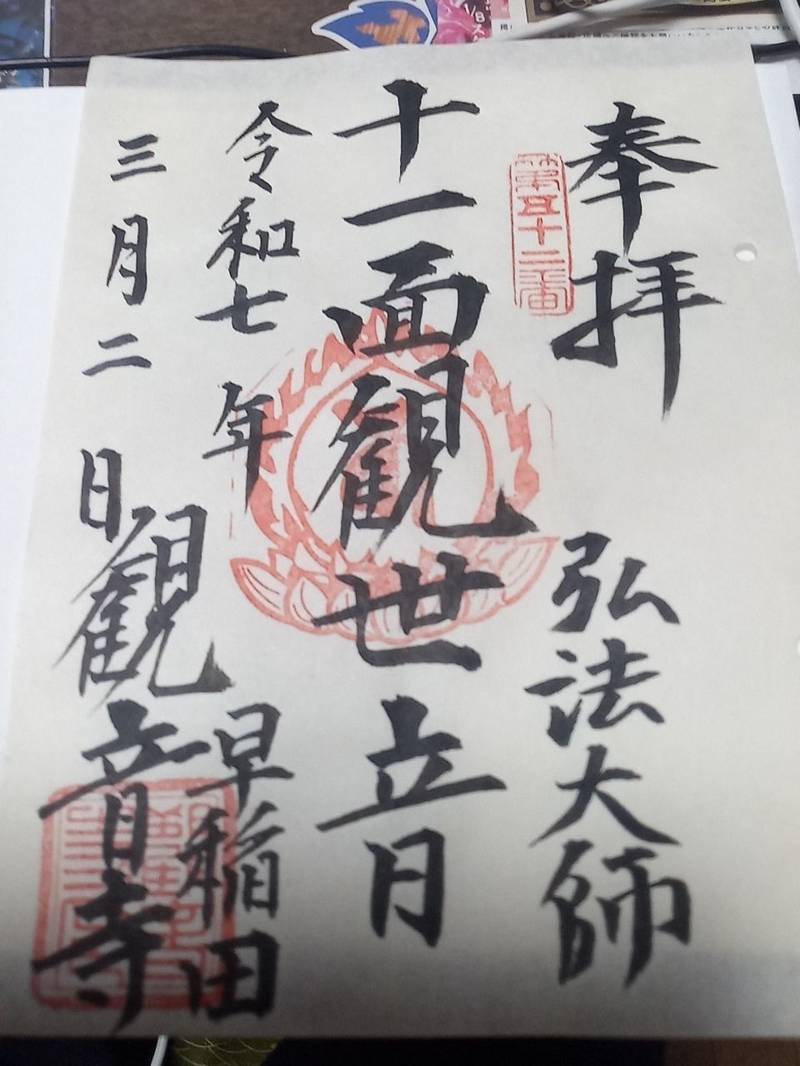 奉拝
第五十二番
弘法大師
十一面観世音
令和七年
三月二日
早稲田
観音寺
1/8